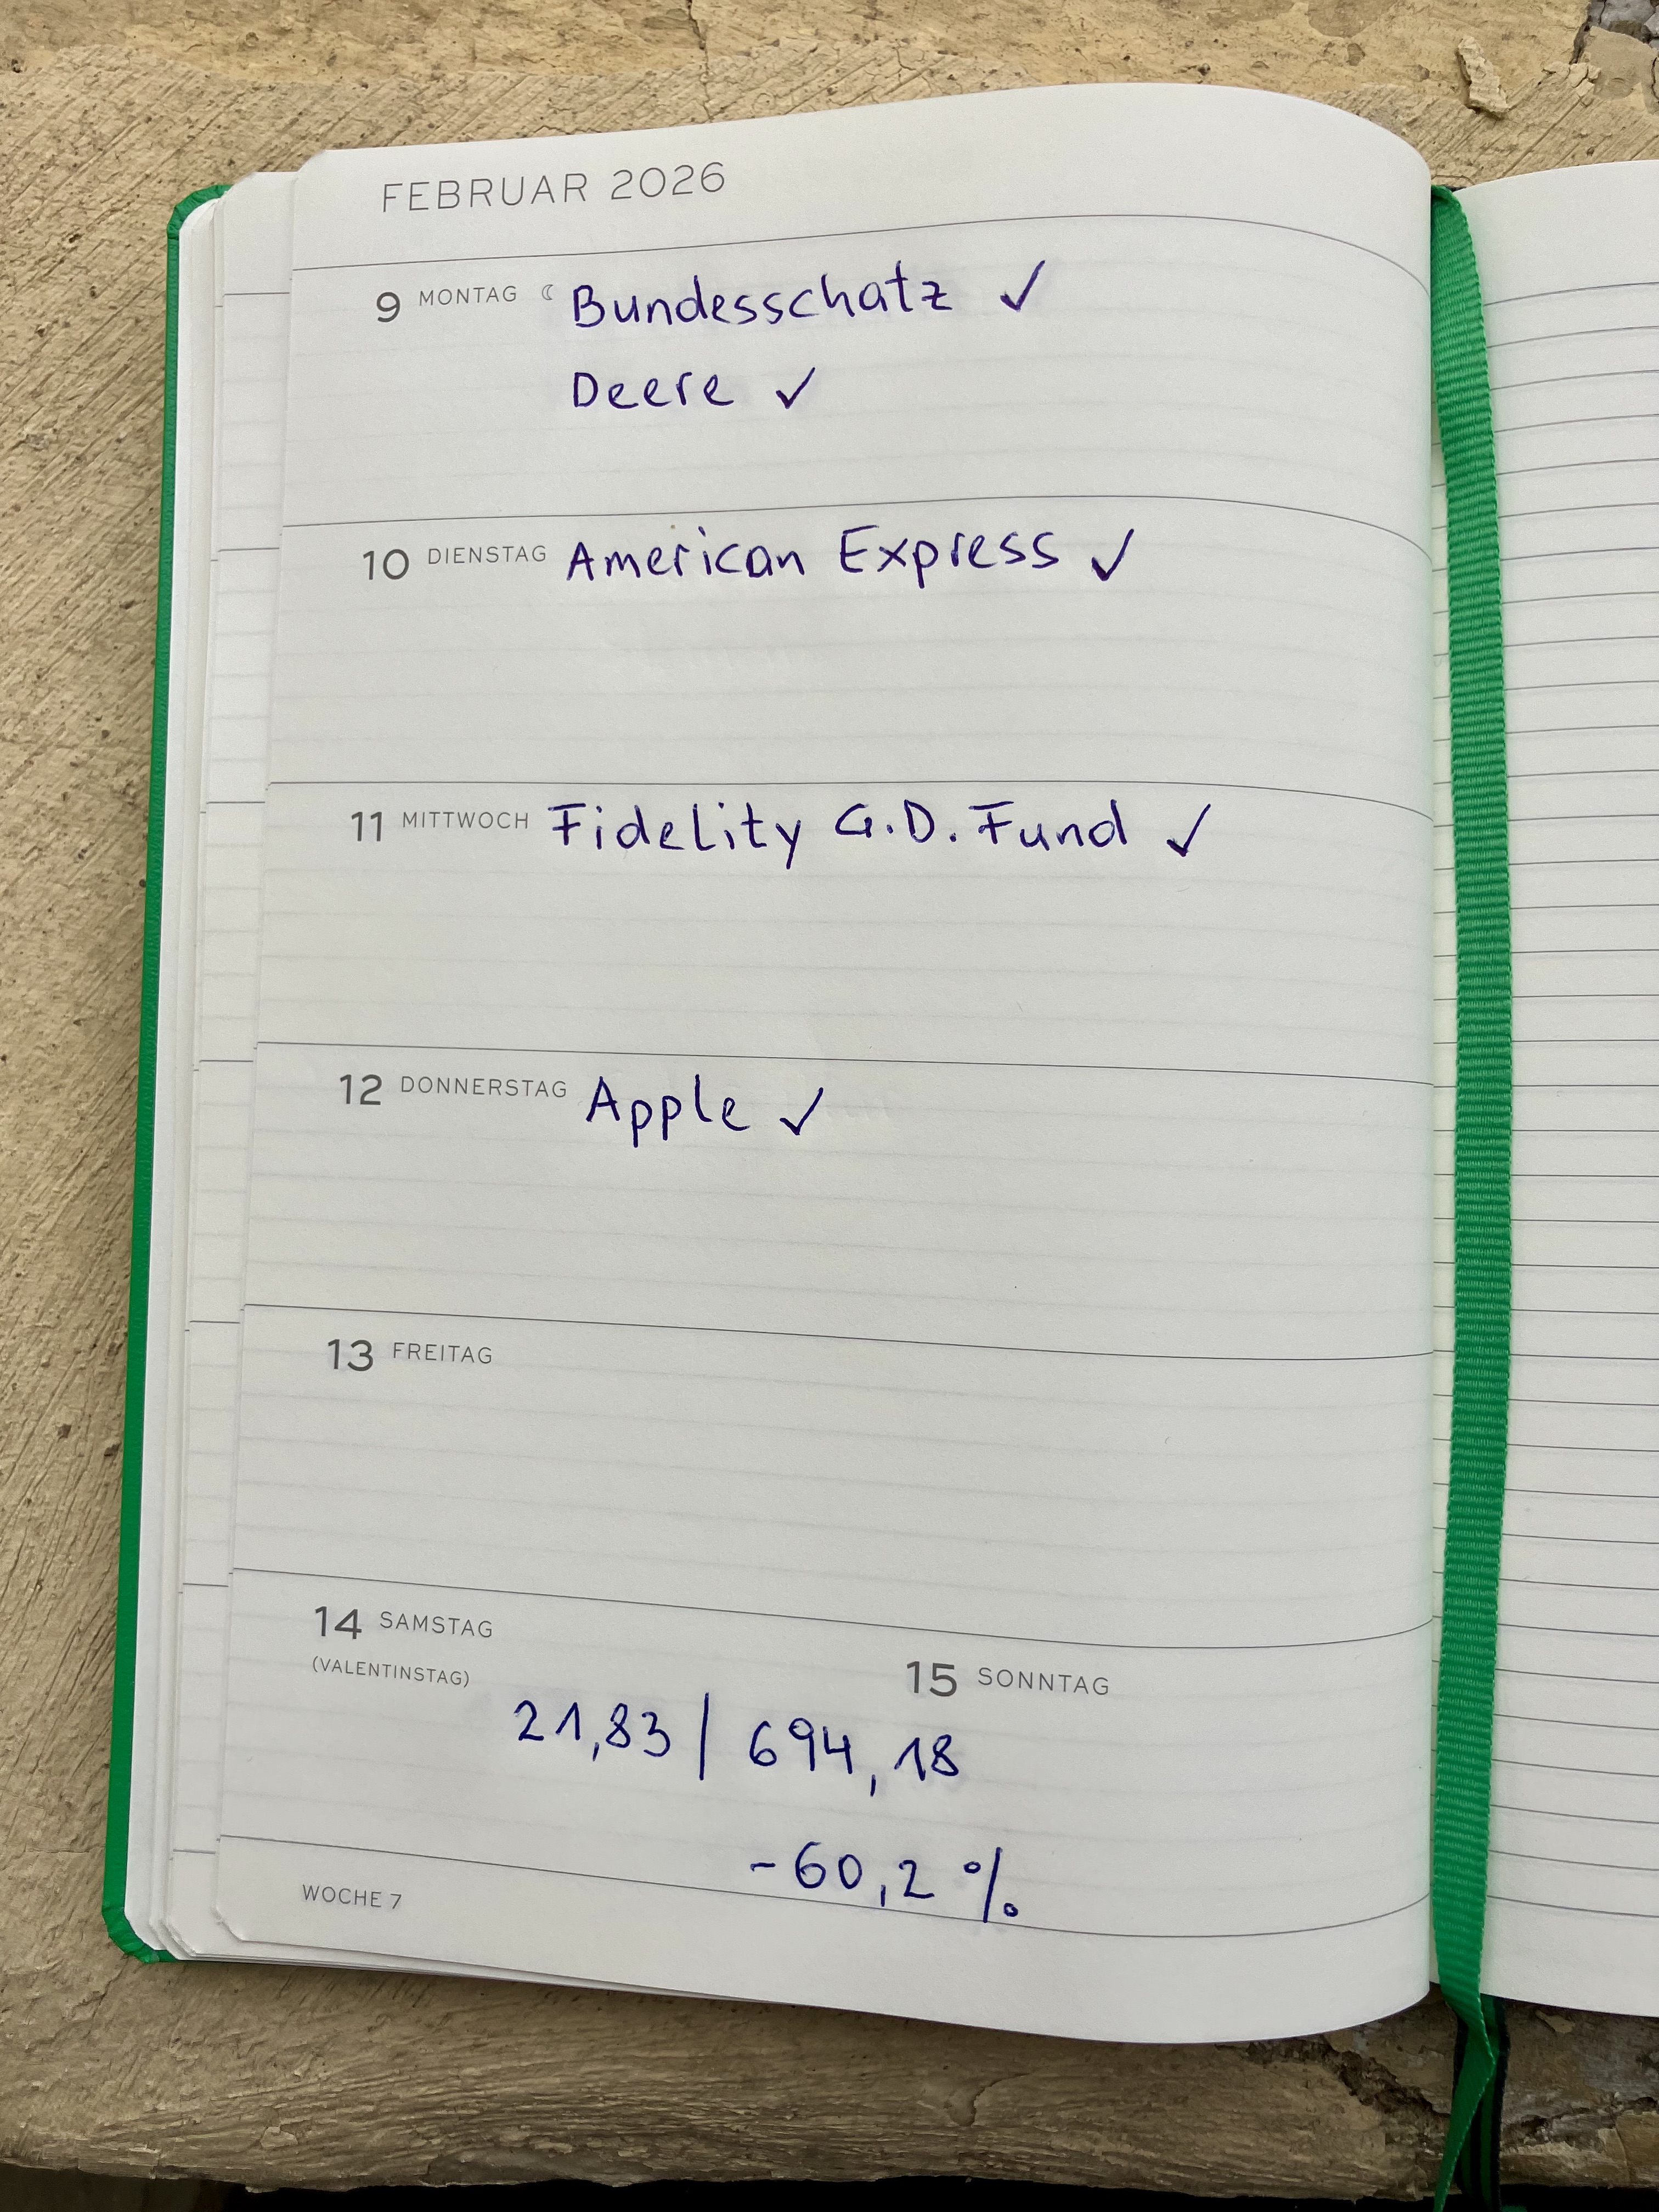 FEBRUAR 2026
9 MONTAG ☾ Bundesschatz ✓
Deere ✓
10 DIENSTAG American Express ✓
11 MITTWOCH Fidelity G.D. Fund ✓
12 DONNERSTAG Apple ✓
13 FREITAG
14 SAMSTAG
(VALENTINSTAG)
15 SONNTAG
21,83 | 694,18
-60,2 %
WOCHE 7